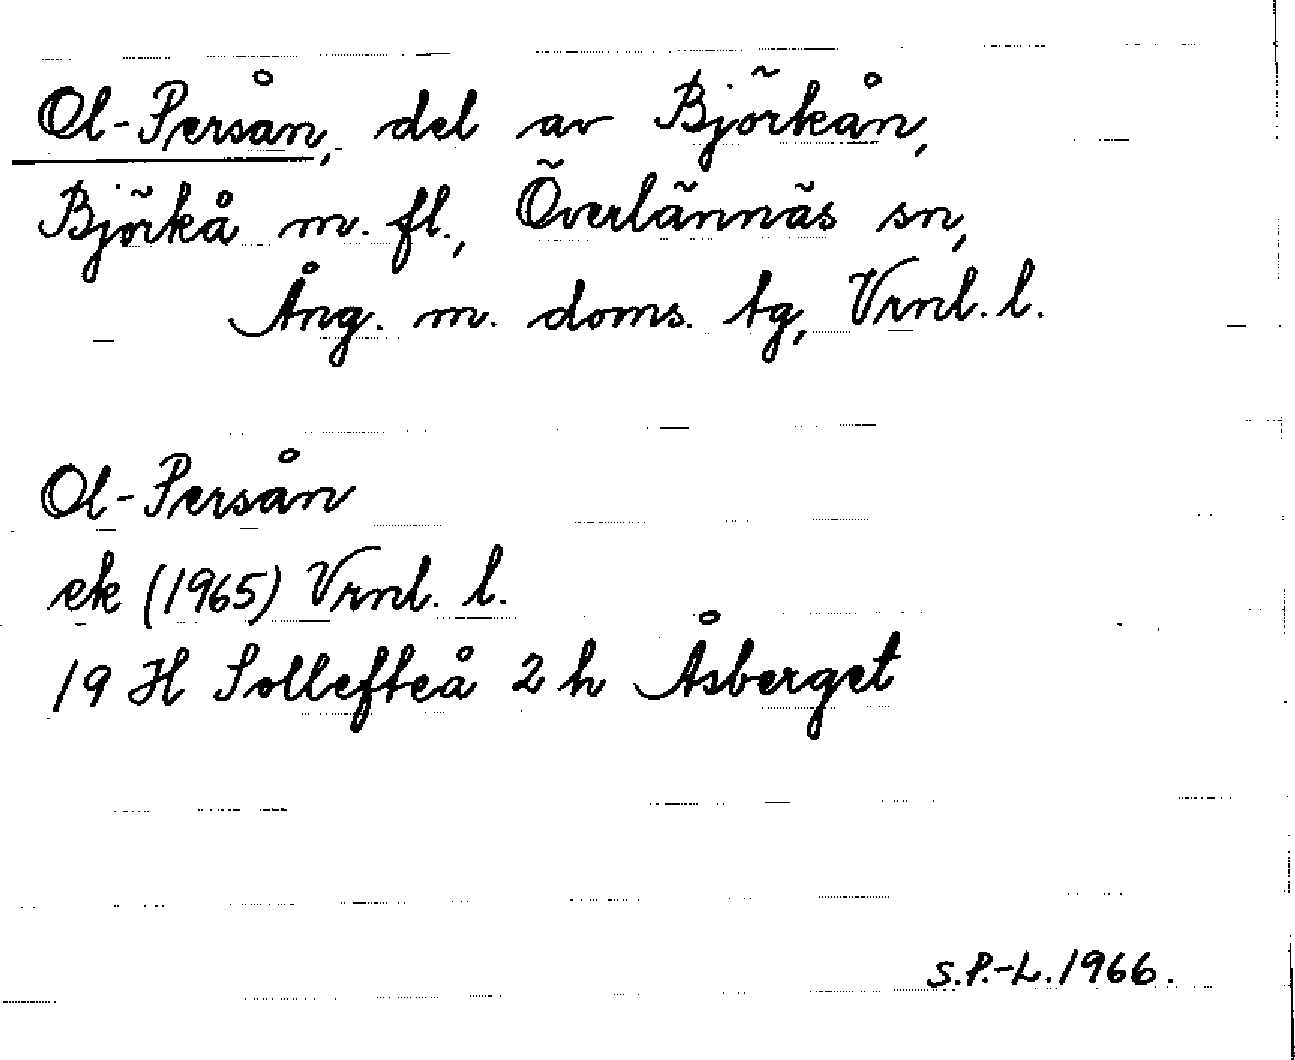 Ol-Persån, del av Björkån,
Björkå m. fl., Överlännäs sn,
Ång. m. doms. tg, Vrnl. l.
Ol-Persån
ek (1965) Vrnl. l.
19 H Sollefteå 2 h Åsberget
S.P.-L. 1966.